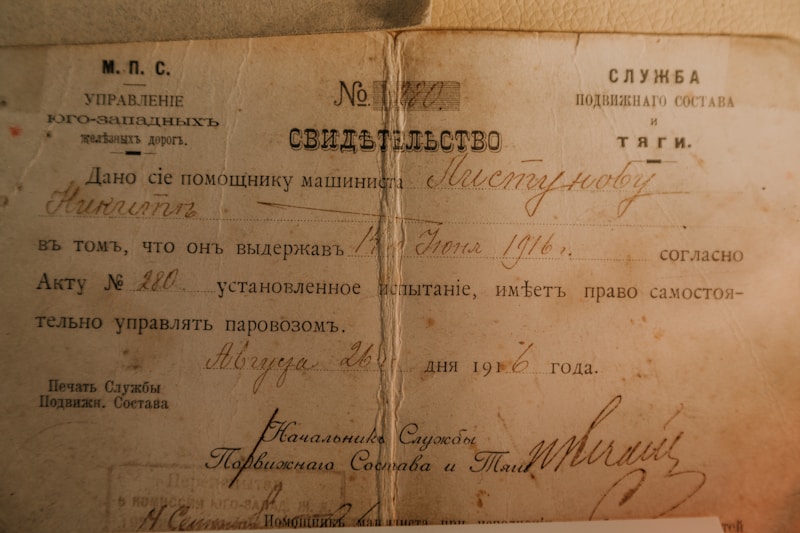 М. П. С.
УПРАВЛЕНІЕ
ЮГО-ЗАПАДНЫХЪ
желѣзныхъ дорогъ.
№ 280.
СЛУЖБА
ПОДВИЖНАГО СОСТАВА
И
ТЯГИ.
СВИДѢТЕЛЬСТВО
Дано сіе помощнику машиниста Пистунову
Никитѣ
въ томъ, что онъ выдержав Іюня 1916 г. согласно
Акту № 280 установленное испытаніе, имѣетъ право самостоя-
тельно управлять паровозомъ.
Августа 26 дня 1916 года.
Печать Службы
Подвижн. Состава
Начальникъ Службы
Подвижнаго Состава и Тяги
в комиссіи юго-запад. ж. д.
Помощникъ машиниста при